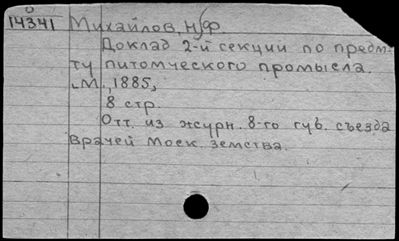 0
14341 Михайлов, Н.Ф.
Доклад 2-й секции по предм-
ту питомческого промысла.
М., 1885,
8 стр.
Отт. из журн. 8-го губ. съезда
врачей Моск. земства.